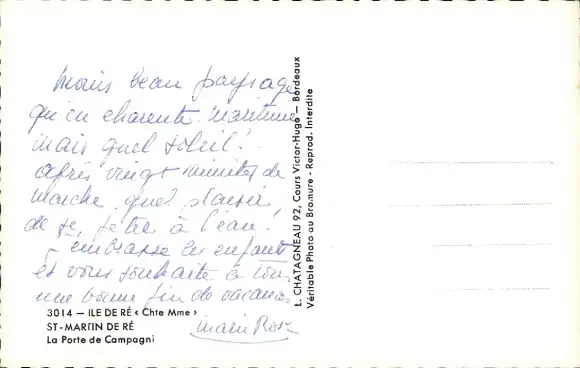 Moins beau paysage
qu'en charente maritime
mais quel soleil !
après vingt minutes de
marche quel plaisir
de se jeter à l'eau !
embrasse les enfants
et vous souhaite à tous
une bonne fin de vacances
Marie Rose
3014 — ILE DE RÉ « Chte Mme »
ST-MARTIN DE RÉ
La Porte de Campagni
L. CHATAGNEAU 92, Cours Victor-Hugo — Bordeaux
Véritable Photo au Bromure - Reprod. Interdite